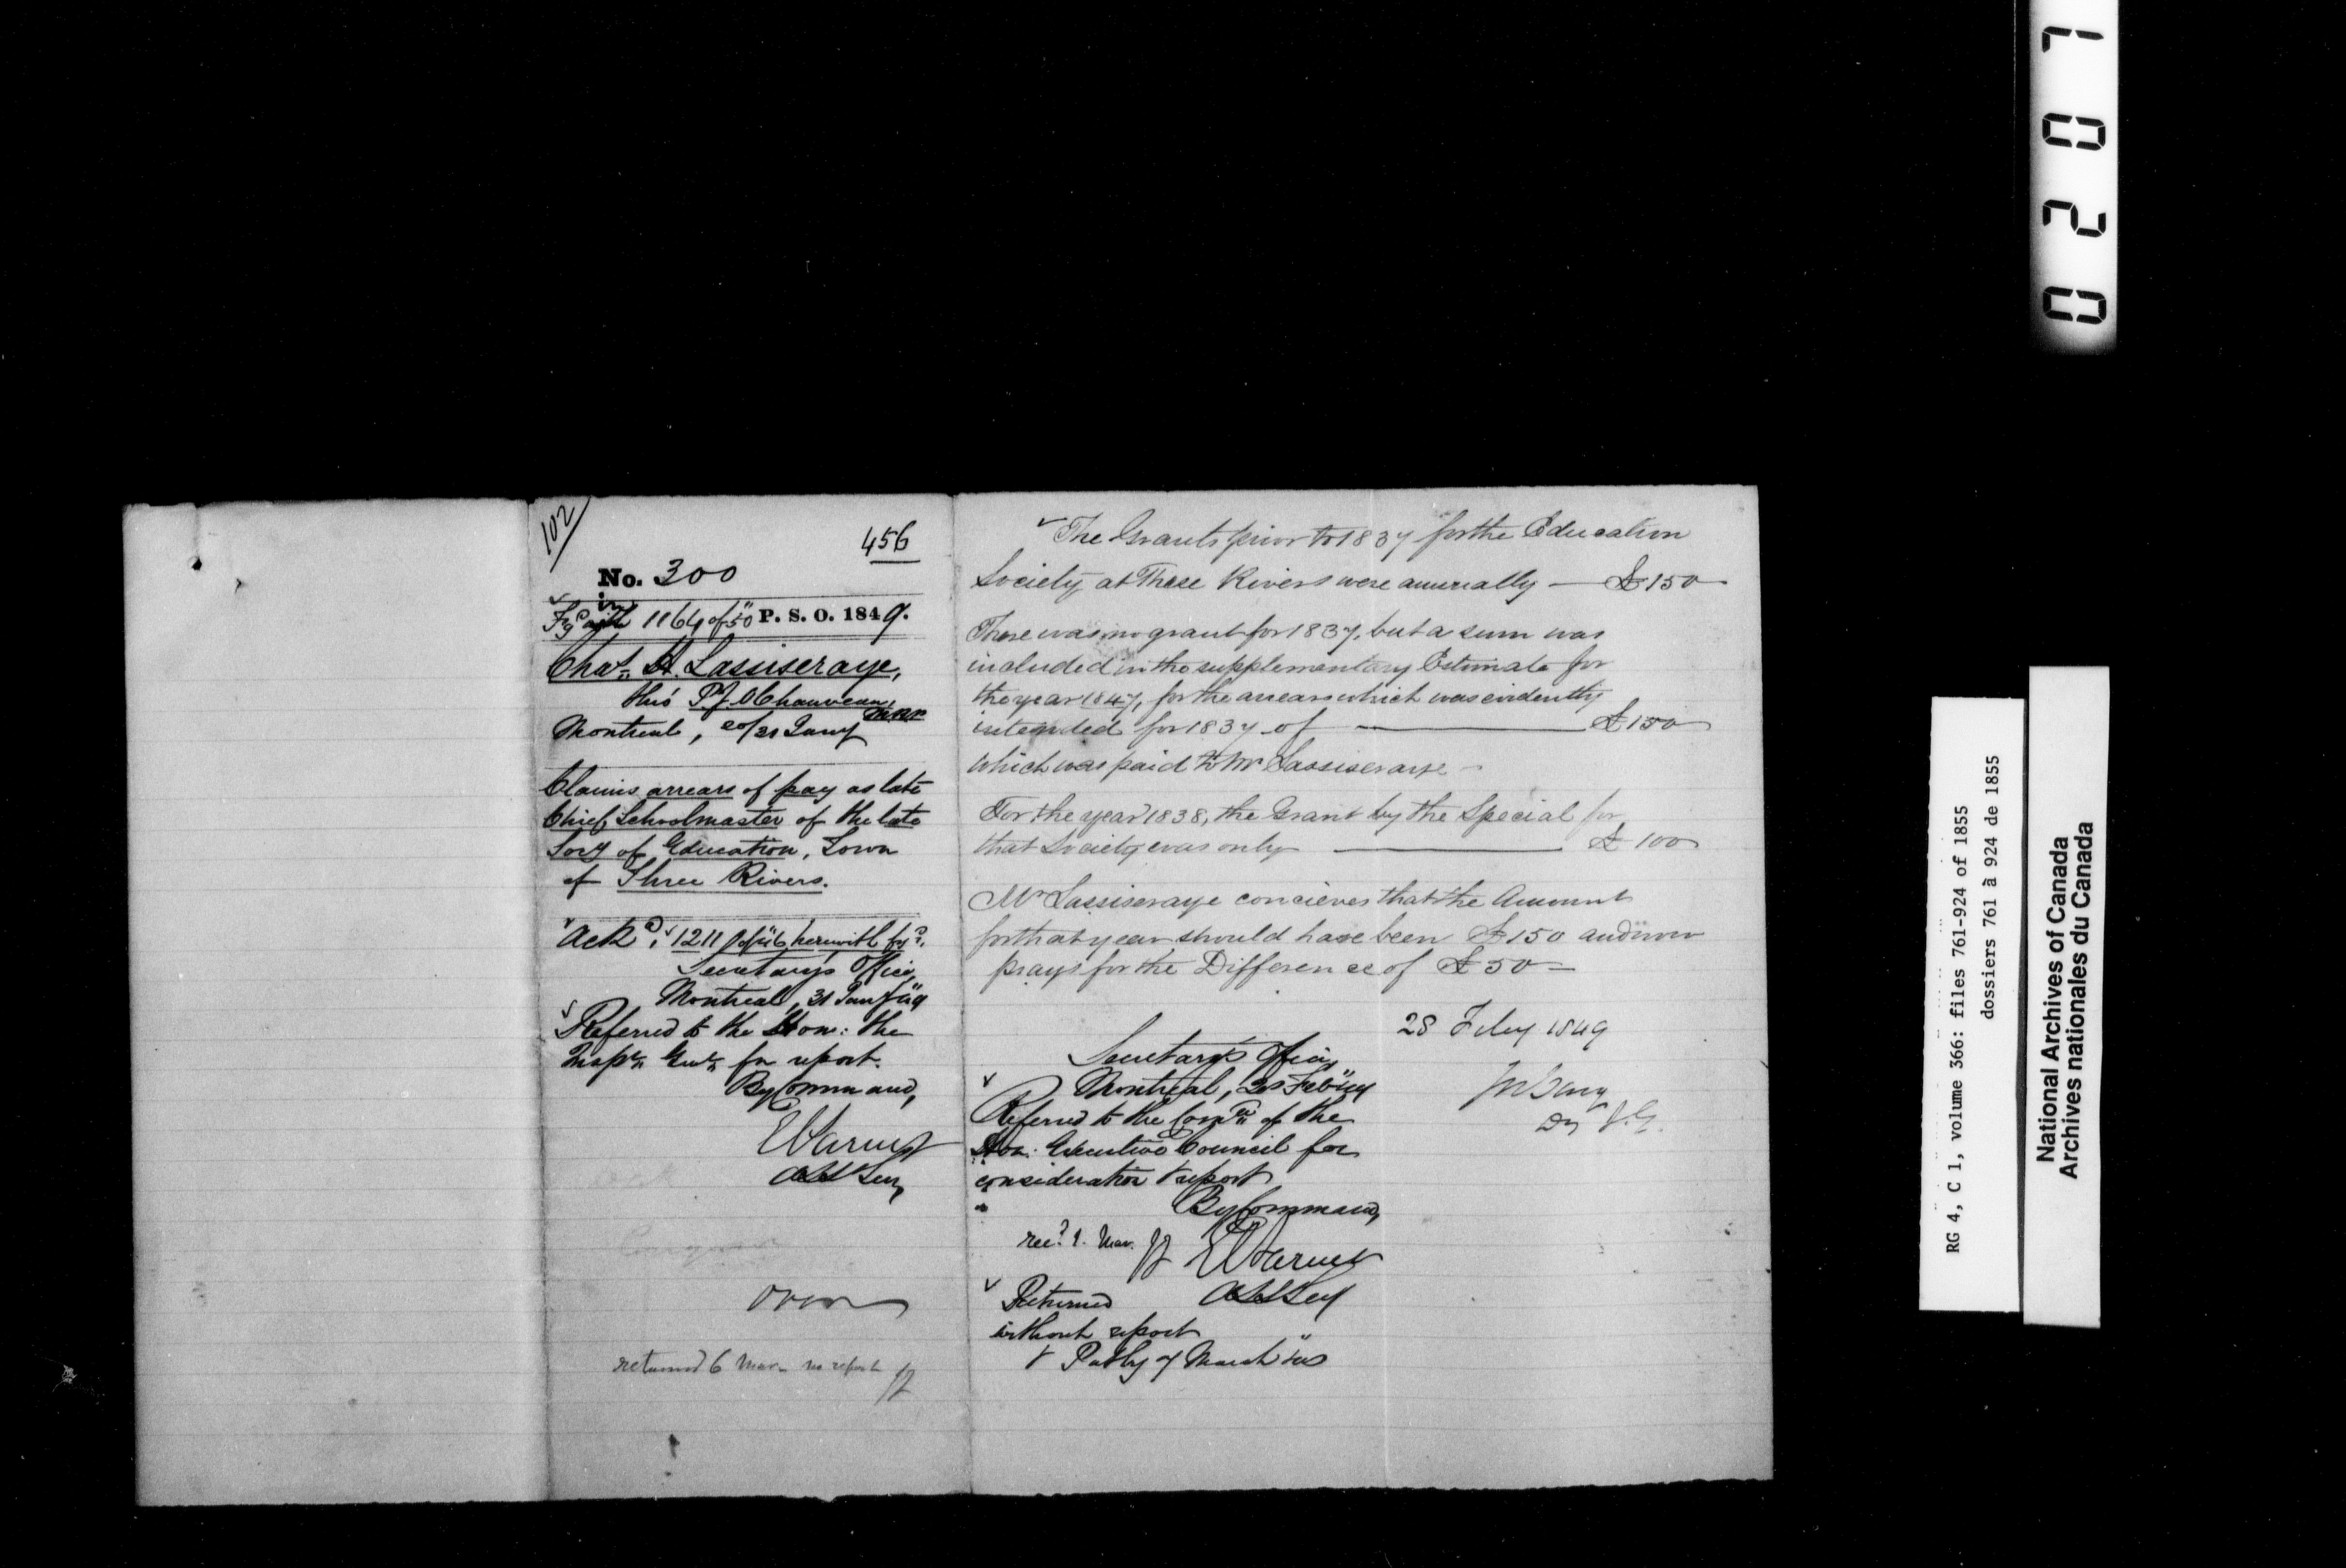 102
456
No. 300
in 1164 of 50 P. S. O. 1849.
Chas. A. Lassiseraye,
thro' P J O Chauveau, MPP
Montreal, 31 Jany
Claims arrears of pay as late
Chief Schoolmaster of the late
Socy of Education, Town
of Three Rivers.
Ackd. 1211 of 46 herewith
Secretary's Office,
Montreal, 31 Jany 49
Referred to the Hon: the
Inspr. Genl. for report.
By Command,
Asst Secy
over
returned 6 Mar. no report
The Grants prior to 1837 for the Education
Society at Three Rivers were annually — £150
There was no grant for 1837, but a sum was
included in the supplementary Estimate for
the year 1847, for the arrears which was evidently
intended for 1837 of — £150
which was paid to Mr Lassiseraye —
For the year 1838, the Grant by the Special for
that Society was only — £100
Mr Lassiseraye concieves that the Amount
for that year should have been £150 and now
prays for the Difference of £50 —
28 Feby 1849
Dy I. G.
Secretary's Office,
Montreal, 28 Feb 49
Referred to the Comee. of the
Hon. Executive Council for
consideration & report
By Command,
recd. 1. Mar.
Asst Secy
Returned
without report
March
0207
RG 4, C 1, volume 366: files 761-924 of 1855
dossiers 761 à 924 de 1855
National Archives of Canada
Archives nationales du Canada